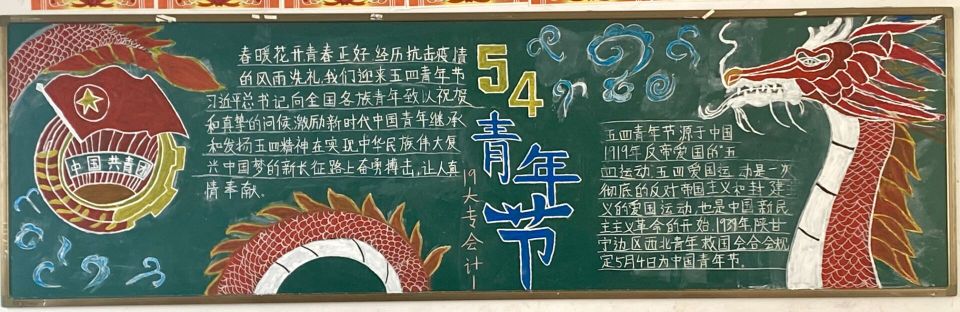 中国共青团
春暖花开青春正好,经历抗击疫情
的风雨洗礼,我们迎来五四青年节
习近平总书记向全国各族青年致以祝贺
和真挚的问候,激励新时代中国青年继承
和发扬五四精神在实现中华民族伟大复
兴中国梦的新长征路上奋勇搏击,让人真
情奉献.
54
青年节
19大专会计一
五四青年节源于中国
1919年反帝爱国的"五
四运动,五四爱国运动是一次
彻底的反对帝国主义和封建主
义的爱国运动.也是中国新民
主主义革命的开始.1939年,陕甘
宁边区西北青年救国会合会规
定5月4日为中国青年节.